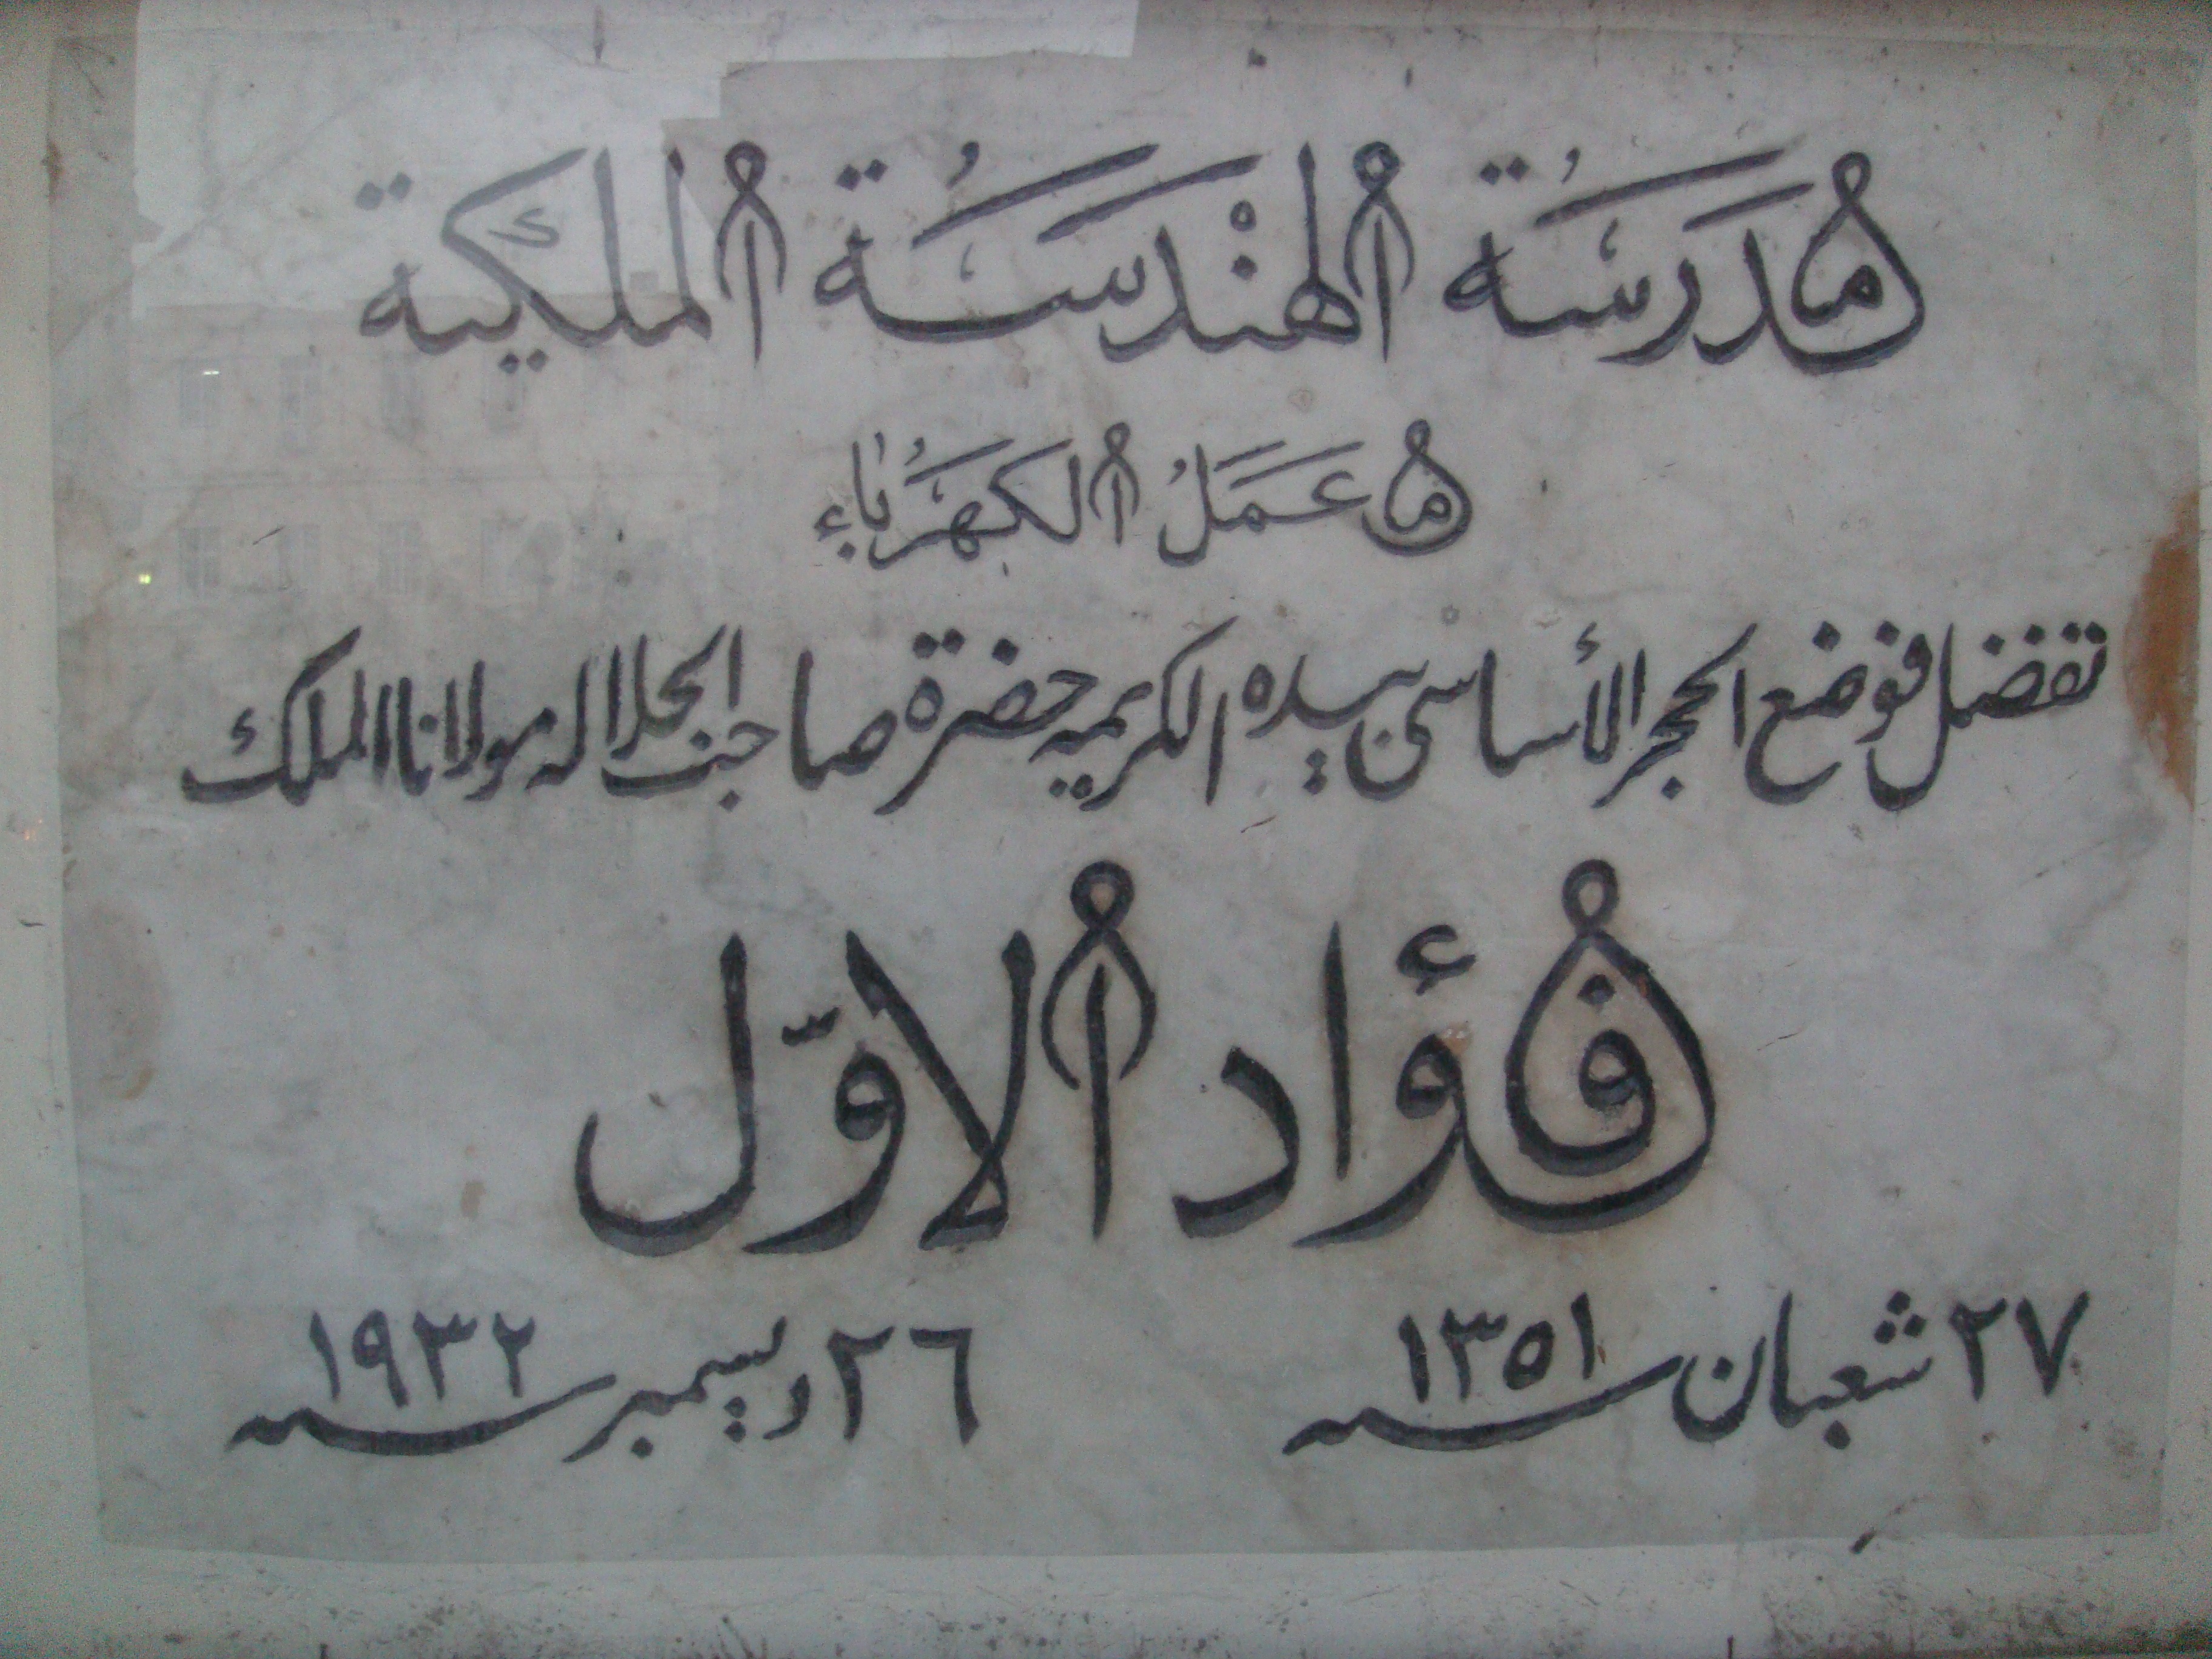 مَدرَسَةُ الهنْدسَةُ الملكيّة
مَعمَلُ الكَهرَباء
تفضل فوضع الحجر الأساسى بيده الكريمه حضرة صاحب الجلاله مولانا الملك
فؤاد الاوّل
٢٧ شعبان سنه ١٣٥١ ٢٦ ديسمبر سنه ١٩٣٢